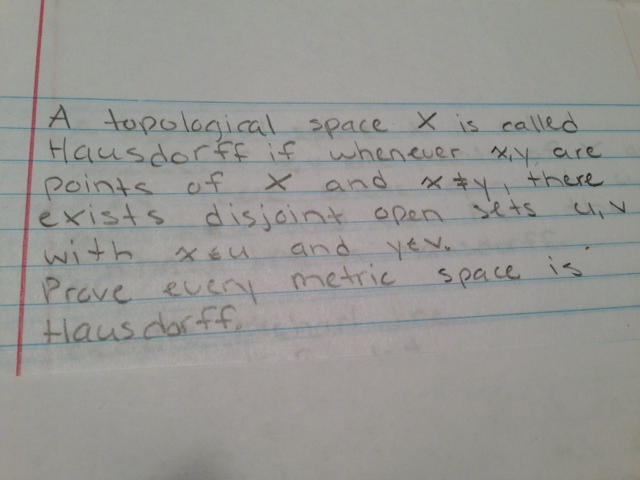 A topological space X is called
Hausdorff if whenever x,y are
points of X and x≠y, there
exists disjoint open sets u,v
with x∈u and y∈v.
Prove every metric space is
Hausdorff.